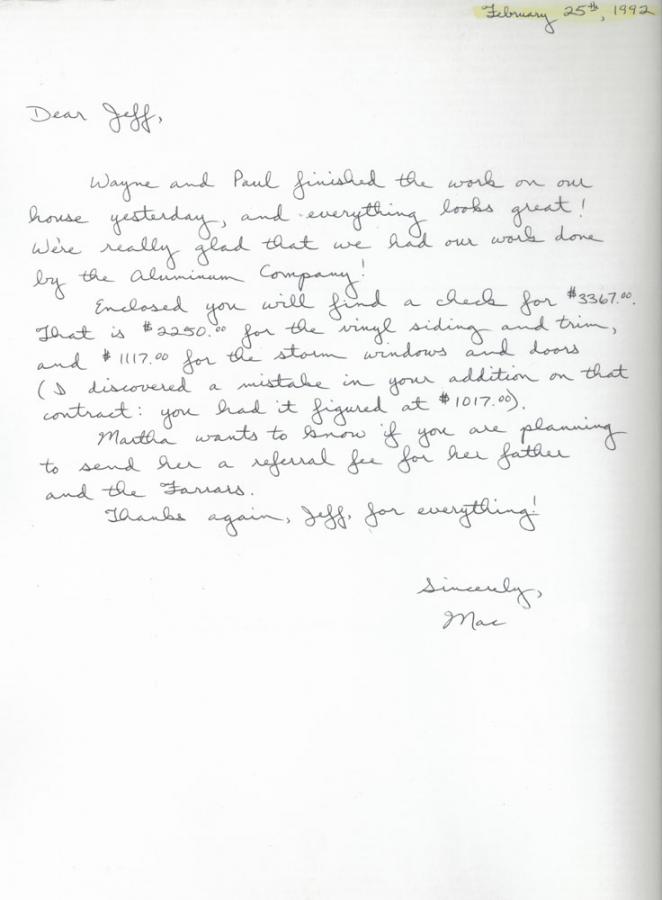 February 25th, 1992
Dear Jeff,
Wayne and Paul finished the work on our
house yesterday, and everything looks great!
We're really glad that we had our work done
by the Aluminum Company!
Enclosed you will find a check for $3367.00.
That is $2250.00 for the vinyl siding and trim,
and $1117.00 for the storm windows and doors
(I discovered a mistake in your addition on that
contract: you had it figured at $1017.00).
Martha wants to know if you are planning
to send her a referral fee for her father
and the Farrars.
Thanks again, Jeff, for everything!
Sincerely,
Mac